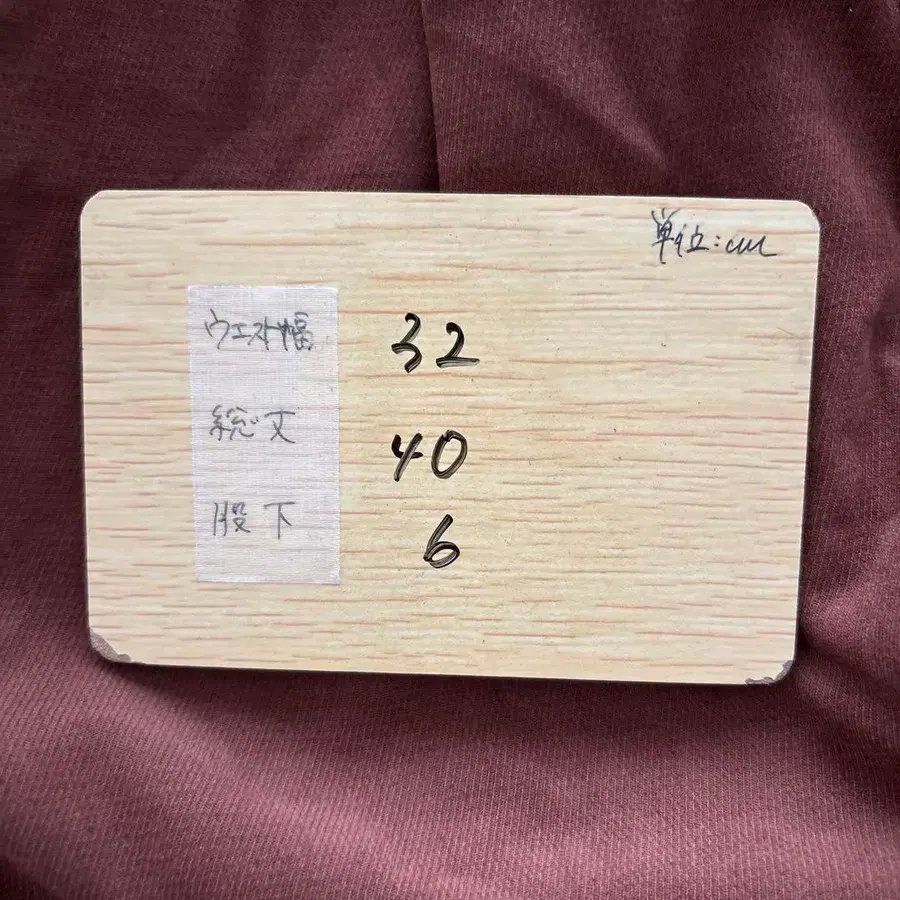 単位:cm
ウエスト幅 32
総丈 40
股下 6